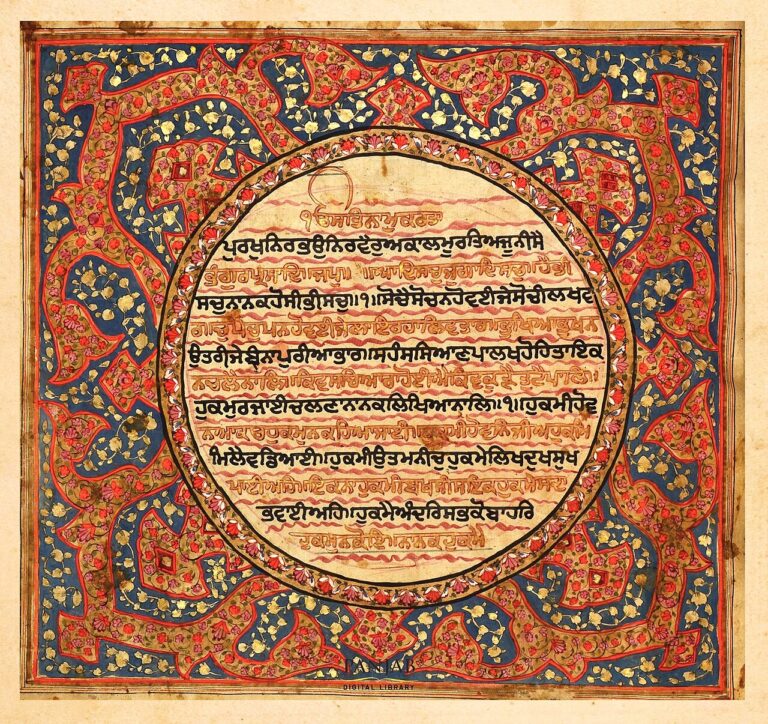 ੴਸਤਿਨਾਮੁਕਰਤਾ
ਪੁਰਖੁਨਿਰਭਉਨਿਰਵੈਰੁਅਕਾਲਮੂਰਤਿਅਜੂਨੀਸੈ
ਭੰਗੁਰਪ੍ਰਸਾਦਿ॥ਜਪੁ॥ ॥ਆਦਿਸਚੁਜੁਗਾਦਿਸਚੁ॥ਹੈਭੀ
ਸਚੁਨਾਨਕਹੋਸੀਭੀਸਚੁ॥੧॥ਸੋਚੈਸੋਚਨਹੋਵਈਜੇਸੋਚੀਲਖਵਾ
ਰ॥ਚੁਪੈਚੁਪਨਹੋਵਈਜੇਲਾਇਰਹਾਲਿਵਤਾਰ॥ਭੁਖਿਆਭੁਖਨ
ਉਤਰੀਜੇਬੰਨਾਪੁਰੀਆਭਾਰ॥ਸਹੰਸਸਿਆਣਪਾਲਖਹੋਹਿਤਾਇਕ
ਨਚਲੈਨਾਲਿ॥ਕਿਵਸਚਿਆਰਾਹੋਈਐਕਿਵਕੂੜੈਤੁਟੈਪਾਲਿ॥
ਹੁਕਮੁਰਜਾਈਚਲਣਾਨਾਨਕਲਿਖਿਆਨਾਲਿ॥੧॥ਹੁਕਮੀਹੋਵ
ਨਿਆਕਾਰਹੁਕਮੁਨਕਹਿਆਜਾਈ॥ਹੁਕਮੀਹੋਵਨਿਜੀਅਹੁਕਮਿ
ਮਿਲੈਵਡਿਆਈ॥ਹੁਕਮੀਉਤਮਨੀਚੁਹੁਕਮੇਲਿਖਦੁਖਸੁਖ
ਪਾਈਅਹਿ॥ਇਕਨਾਹੁਕਮੀਬਖਸੀਸਇਕਹੁਕਮੇਸਦਾ
ਭਵਾਈਅਹਿ॥ਹੁਕਮੈਅੰਦਰਿਸਭਕੋਬਾਹਰਿ
ਹੁਕਮਨਕੋਇ॥ਨਾਨਕਹੁਕਮੈ
PANJAB
DIGITAL LIBRARY